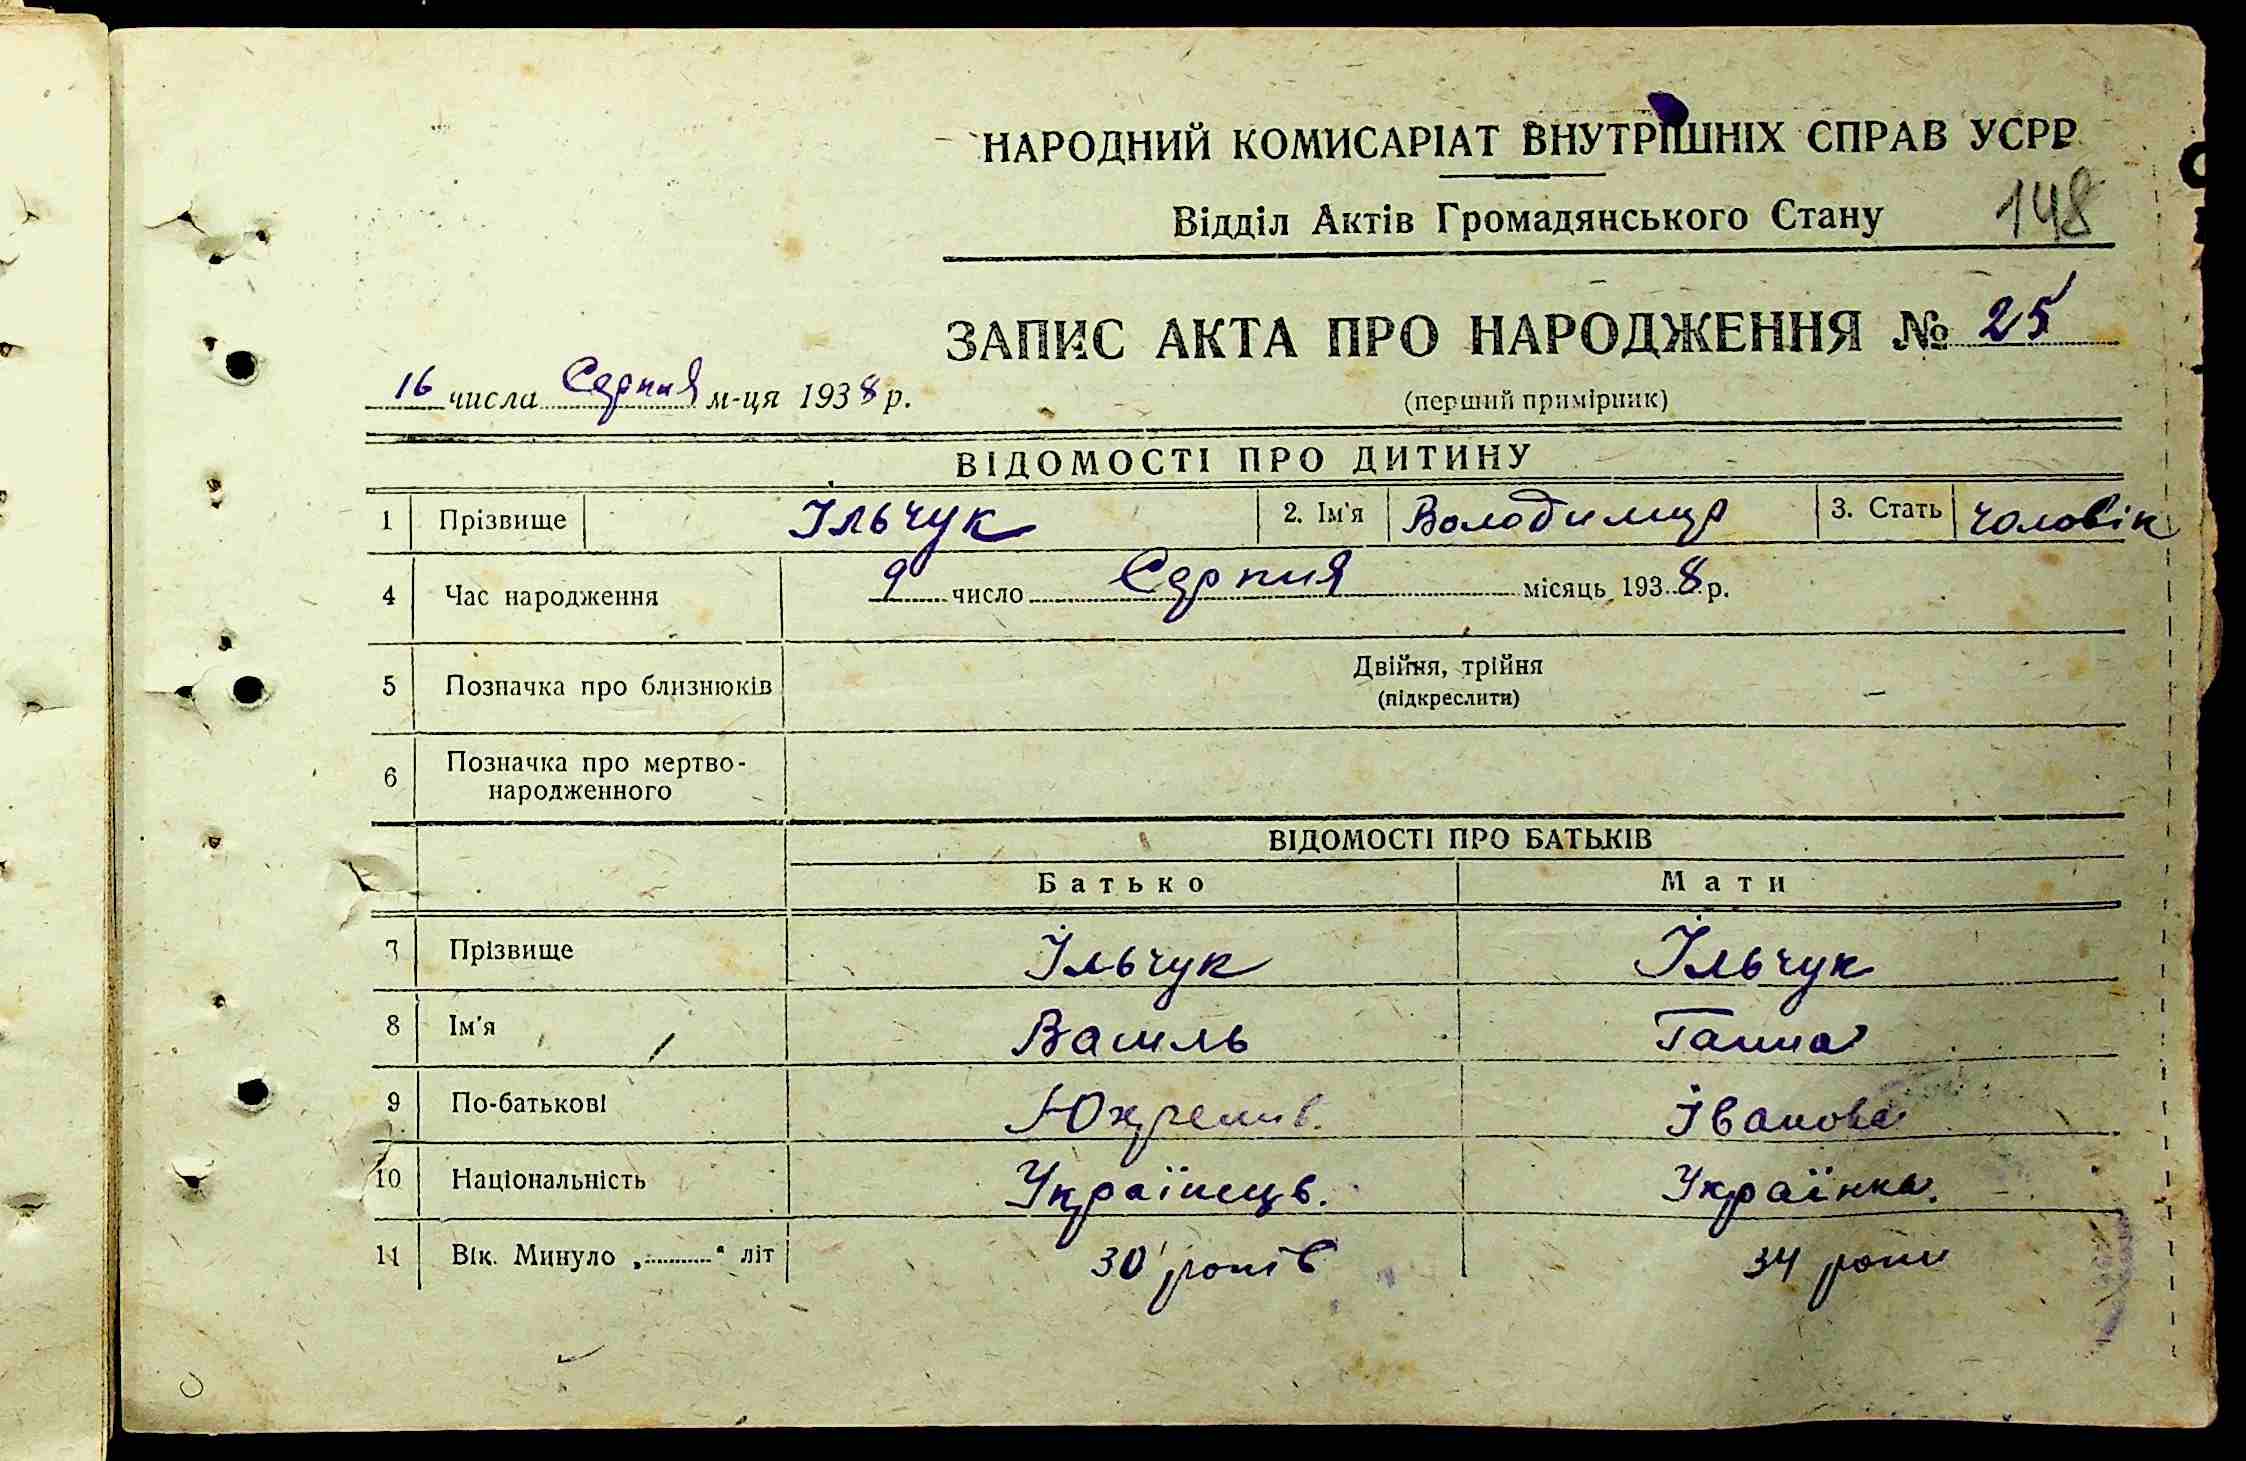 НАРОДНИЙ КОМИСАРІАТ ВНУТРІШНІХ СПРАВ УСРР
148
Відділ Актів Громадянського Стану
ЗАПИС АКТА ПРО НАРОДЖЕННЯ № 25
16 числа Серпня м-ця 1938 р.
(перший примірник)
ВІДОМОСТІ ПРО ДИТИНУ
1 Прізвище Ільчук 2. Ім'я Володимир 3. Стать чоловік
4 Час народження 9 число Серпня місяць 1938 р.
5 Позначка про близнюків Двійня, трійня
(підкреслити) —
6 Позначка про мертво-
народженного
ВІДОМОСТІ ПРО БАТЬКІВ
Батько Мати
7 Прізвище Ільчук Ільчук
8 Ім'я Василь Ганна
9 По-батькові Іванова
10 Національність Українець. Українка.
11 Вік. Минуло „..........“ літ 30 років 34 роки